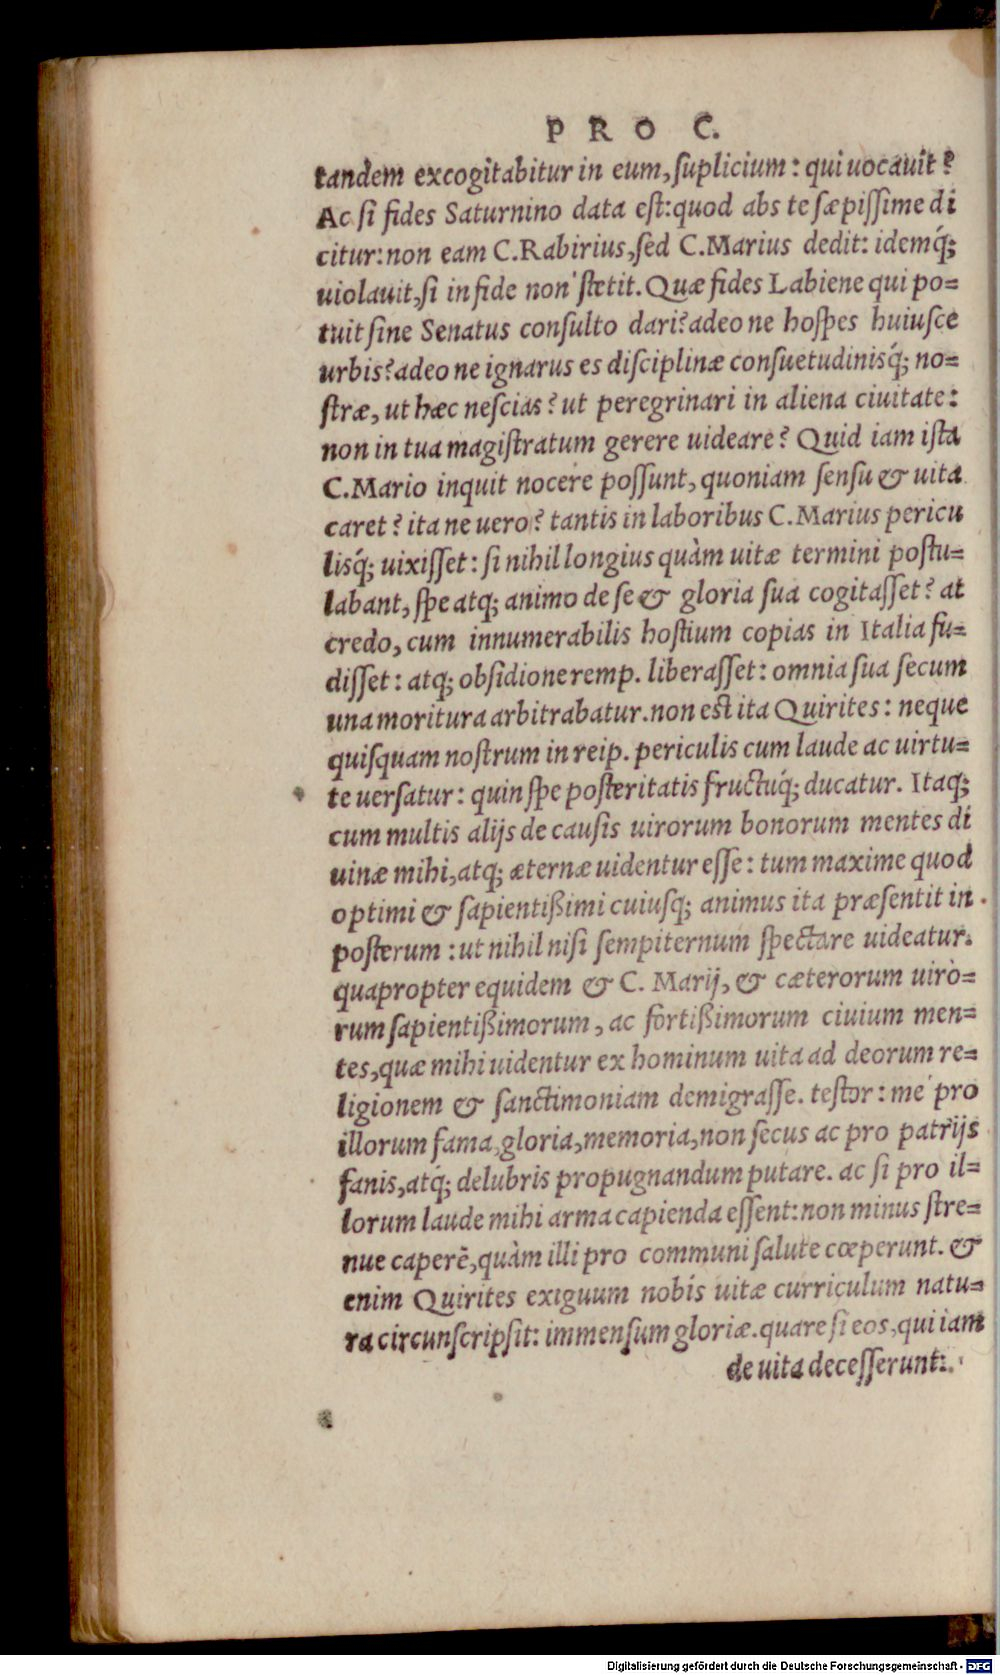 PRO C.
tandem excogitabitur in eum, ſuplicium: qui uocauit?
Ac ſi fides Saturnino data eſt: quod abs te ſæpiſſime di
citur: non eam C. Rabirius, ſed C. Marius dedit: idemq́;
uiolauit, ſi in fide non ſtetit. Quæ fides Labiene qui po=
tuit ſine Senatus conſulto dari? adeo ne hoſpes huiuſce
urbis? adeo ne ignarus es diſciplinæ conſuetudinisq́; no=
ſtræ, ut hæc neſcias? ut peregrinari in aliena ciuitate:
non in tua magiſtratum gerere uideare? Quid iam iſta
C. Mario inquit nocere poſſunt, quoniam ſenſu & uita
caret? ita ne uero? tantis in laboribus C. Marius pericu
lisq́; uixiſſet: ſi nihil longius quàm uitæ termini poſtu=
labant, ſpe atq; animo de ſe & gloria ſua cogitaſſet? at
credo, cum innumerabilis hoſtium copias in Italia fu=
diſſet: atq; obſidione remp. liberaſſet: omnia ſua ſecum
una moritura arbitrabatur. non eſt ita Quirites: neque
quiſquam noſtrum in reip. periculis cum laude ac uirtu=
te uerſatur: quin ſpe poſteritatis fructuq́; ducatur. Itaq;
cum multis alijs de cauſis uirorum bonorum mentes di
uinæ mihi, atq; æternæ uidentur eſſe: tum maxime quod
optimi & ſapientißimi cuiuſq; animus ita præſentit in
poſterum: ut nihil niſi ſempiternum ſpectare uideatur.
quapropter equidem & C. Marij, & cæterorum uiro=
rum ſapientißimorum, ac fortißimorum ciuium men=
tes, quæ mihi uidentur ex hominum uita ad deorum re=
ligionem & ſanctimoniam demigraſſe. teſtor: me pro
illorum fama, gloria, memoria, non ſecus ac pro patrijs
fanis, atq́; delubris propugnandum putare. ac ſi pro il=
lorum laude mihi arma capienda eſſent: non minus ſtre=
nue caperẽ, quàm illi pro communi ſalute cœperunt. &
enim Quirites exiguum nobis uitæ curriculum natu=
ra circunſcripſit: immenſum gloriæ. quare ſi eos, qui iam
de uita deceſſerunt:
Digitalisierung gefördert durch die Deutsche Forschungsgemeinschaft - DFG